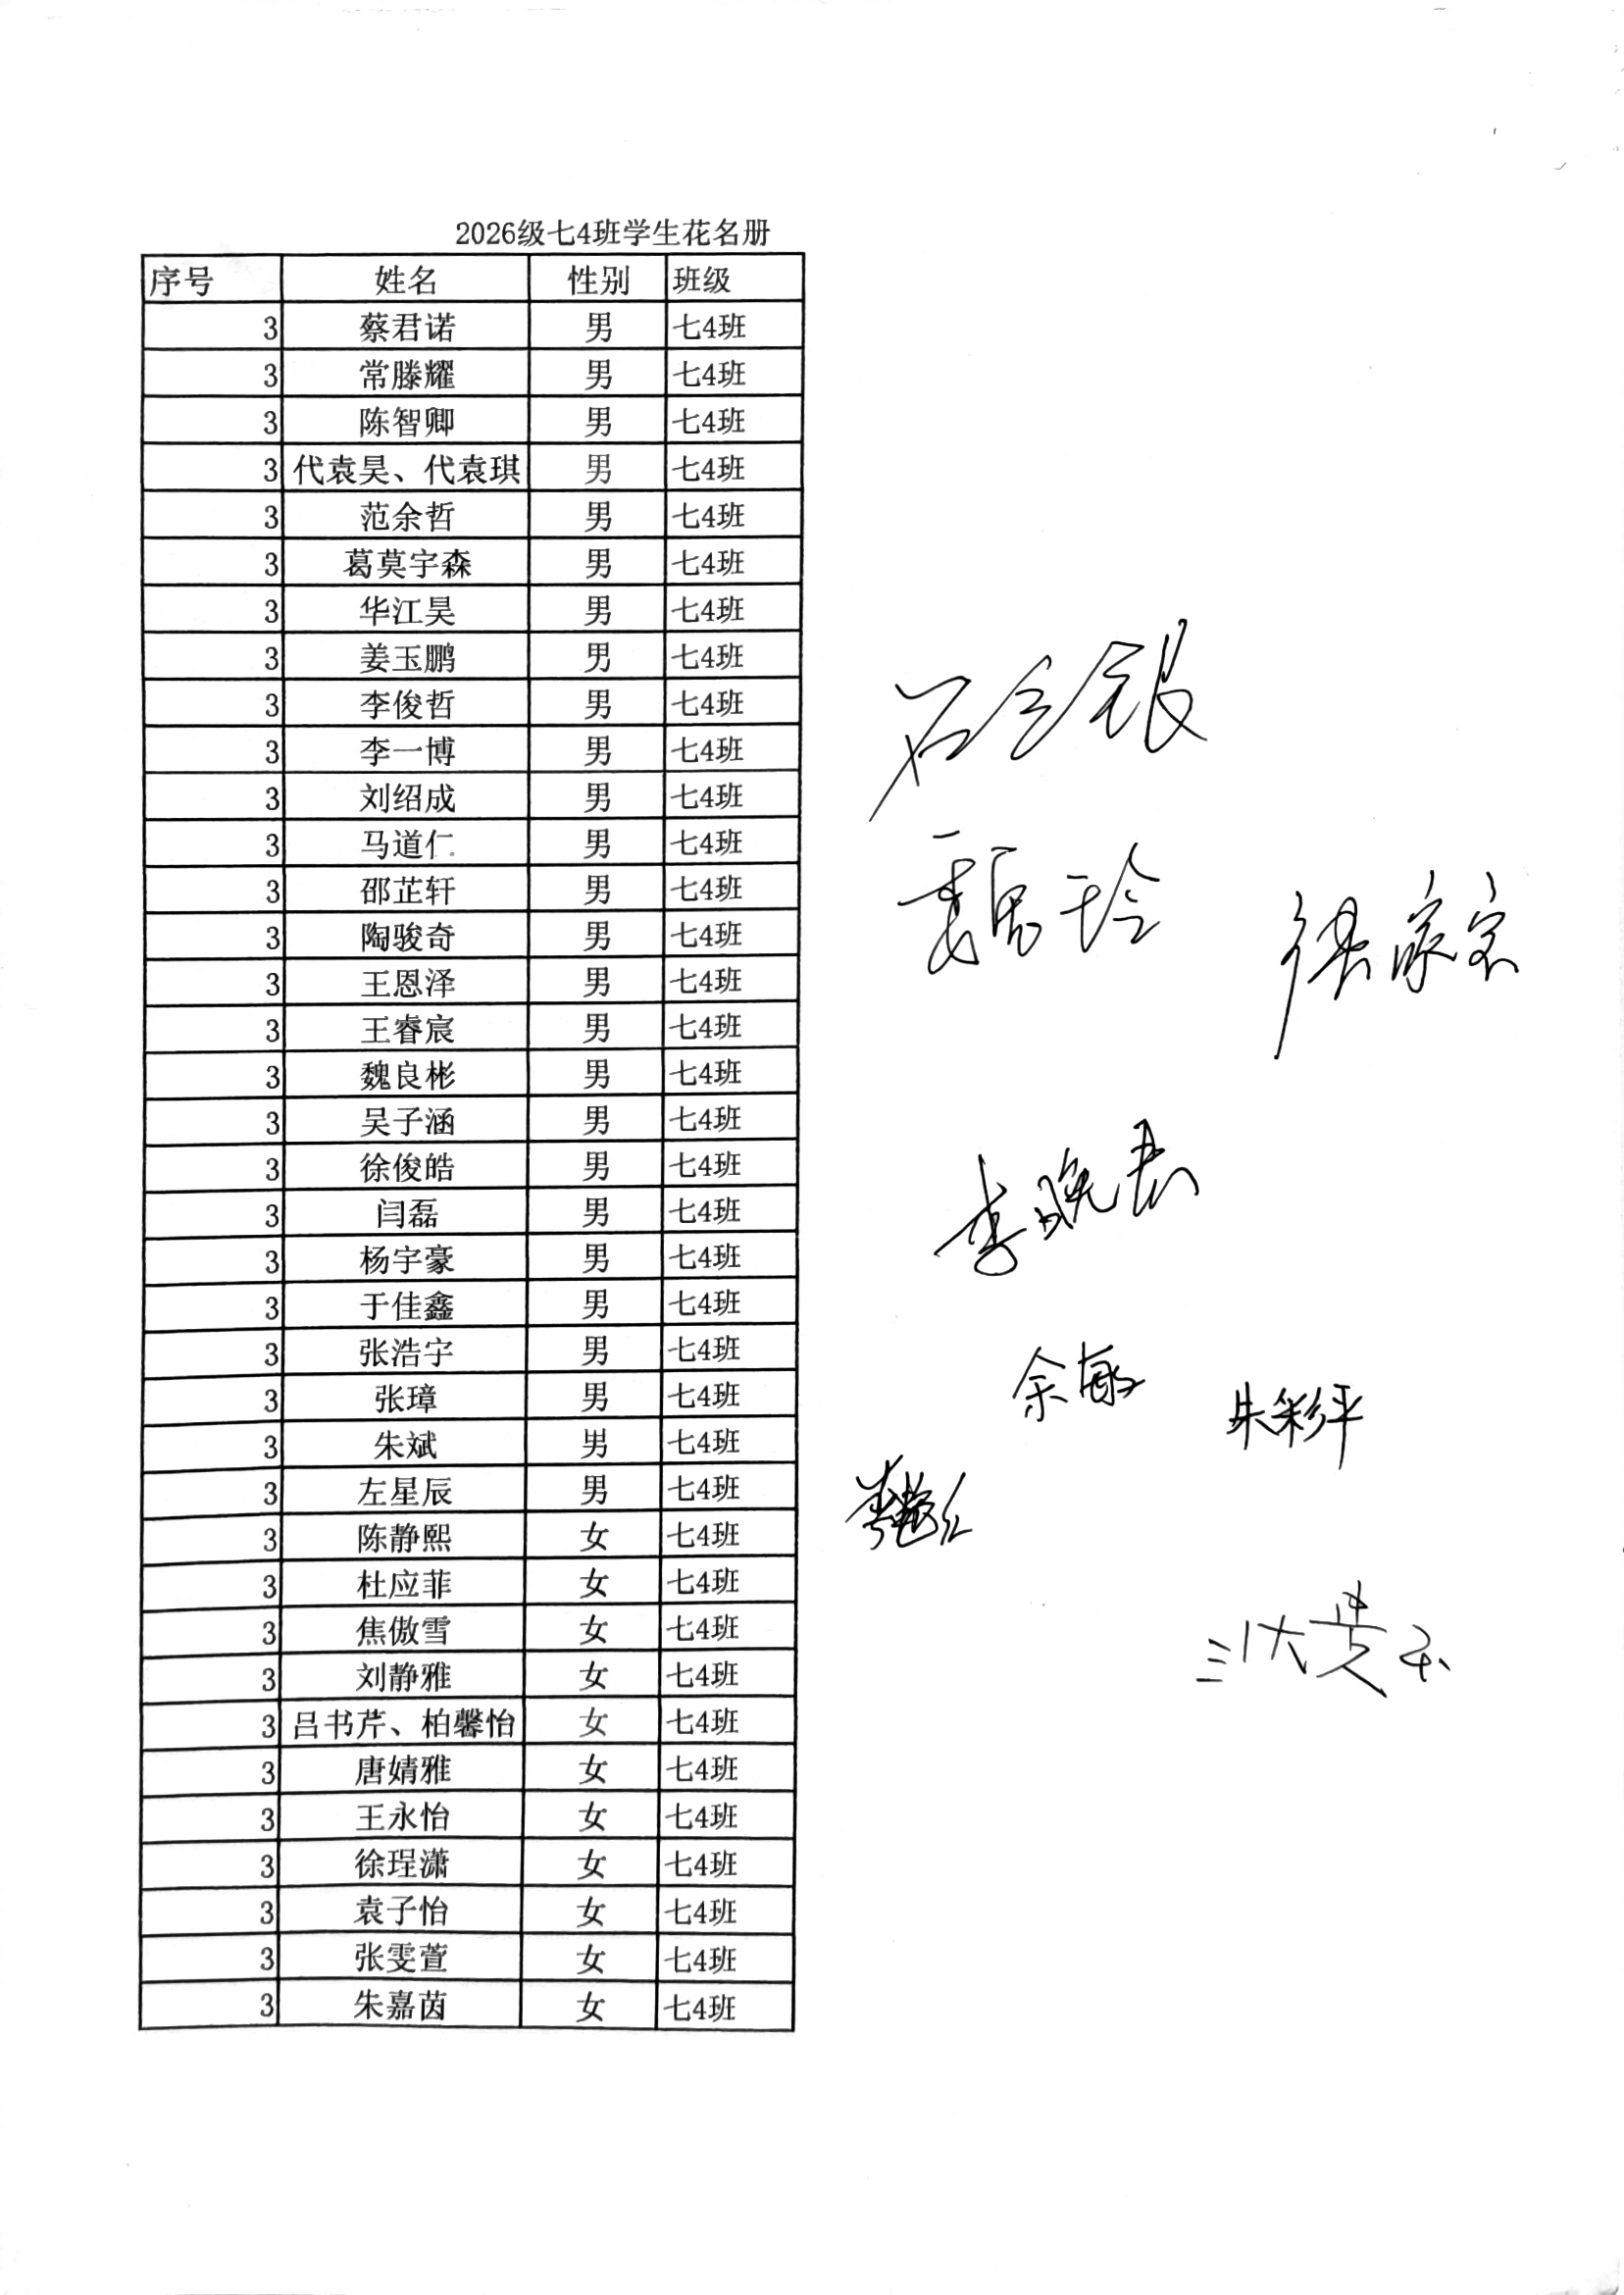 2026级七4班学生花名册
序号 姓名 性别 班级
3 蔡君诺 男 七4班
3 常滕耀 男 七4班
3 陈智卿 男 七4班
3 代袁昊、代袁琪 男 七4班
3 范余哲 男 七4班
3 葛莫宇森 男 七4班
3 华江昊 男 七4班
3 姜玉鹏 男 七4班
3 李俊哲 男 七4班
3 李一博 男 七4班
3 刘绍成 男 七4班
3 马道仁 男 七4班
3 邵芷轩 男 七4班
3 陶骏奇 男 七4班
3 王恩泽 男 七4班
3 王睿宸 男 七4班
3 魏良彬 男 七4班
3 吴子涵 男 七4班
3 徐俊皓 男 七4班
3 闫磊 男 七4班
3 杨宇豪 男 七4班
3 于佳鑫 男 七4班
3 张浩宇 男 七4班
3 张璋 男 七4班
3 朱斌 男 七4班
3 左星辰 男 七4班
3 陈静熙 女 七4班
3 杜应菲 女 七4班
3 焦傲雪 女 七4班
3 刘静雅 女 七4班
3 吕书芹、柏馨怡 女 七4班
3 唐婧雅 女 七4班
3 王永怡 女 七4班
3 徐珵潇 女 七4班
3 袁子怡 女 七4班
3 张雯萱 女 七4班
3 朱嘉茵 女 七4班
魏玲
余敏
朱彩平